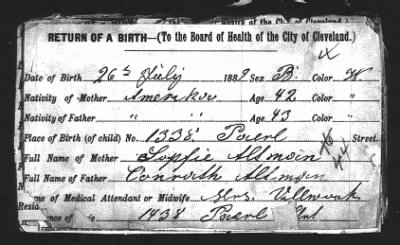 RETURN OF A BIRTH—(To the Board of Health of the City of Cleveland.)
Date of Birth 26th July 1889 Sex B. Color W
Nativity of Mother Amerika Age 42 Color "
Nativity of Father " " Age 43 Color "
Place of Birth (of child) No. 1338 Paerl Street.
Full Name of Mother Sophie Altmain
Full Name of Father Conrath Altmain
me of Medical Attendant or Midwife Mrs. Villwock
Resid
ence of 1438 Paerl